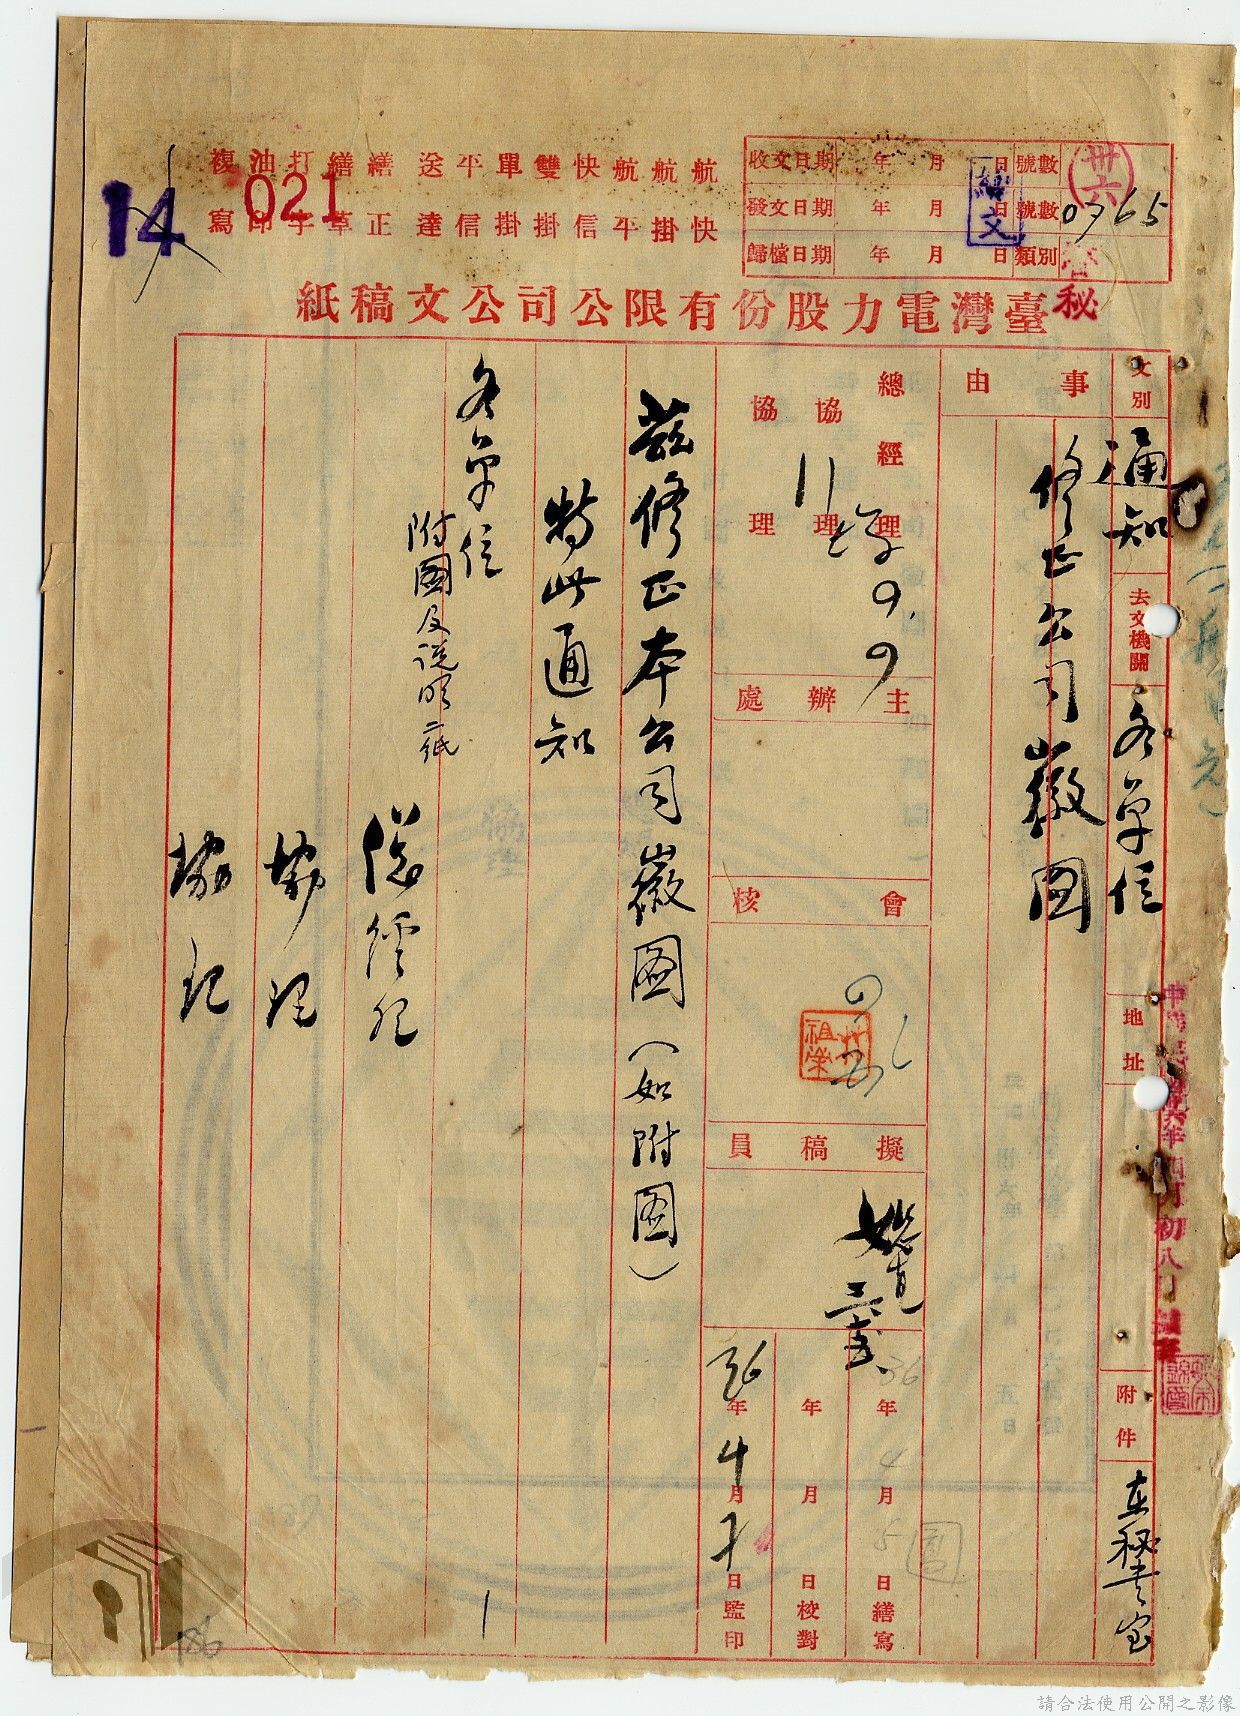 航快 航掛 航平 快信 雙掛 單掛 平信 送達 繕正 繕草 打字 油印 複寫
021
14
收文日期 年 月 日 號數
發文日期 年 月 日 號數 0765
歸檔日期 年 月 日 類別
卅六
繕文
秘
臺灣電力股份有限公司公文稿紙
文別 通知 去文機關 各單位 地址 附件 在秘書室
事由 修正公司徽圖
總經理 協理 協理
9.9
主辦處
會核
祖榮
擬稿員
36年4月5日繕寫
年 月 日校對
36年4月 日監印
圖
茲修正本公司徽圖(如附圖)
特此通知
各單位
附圖及說明二紙
總經理
協理
協理
中華民國卅六年四月初八日
186
請合法使用公開之影像